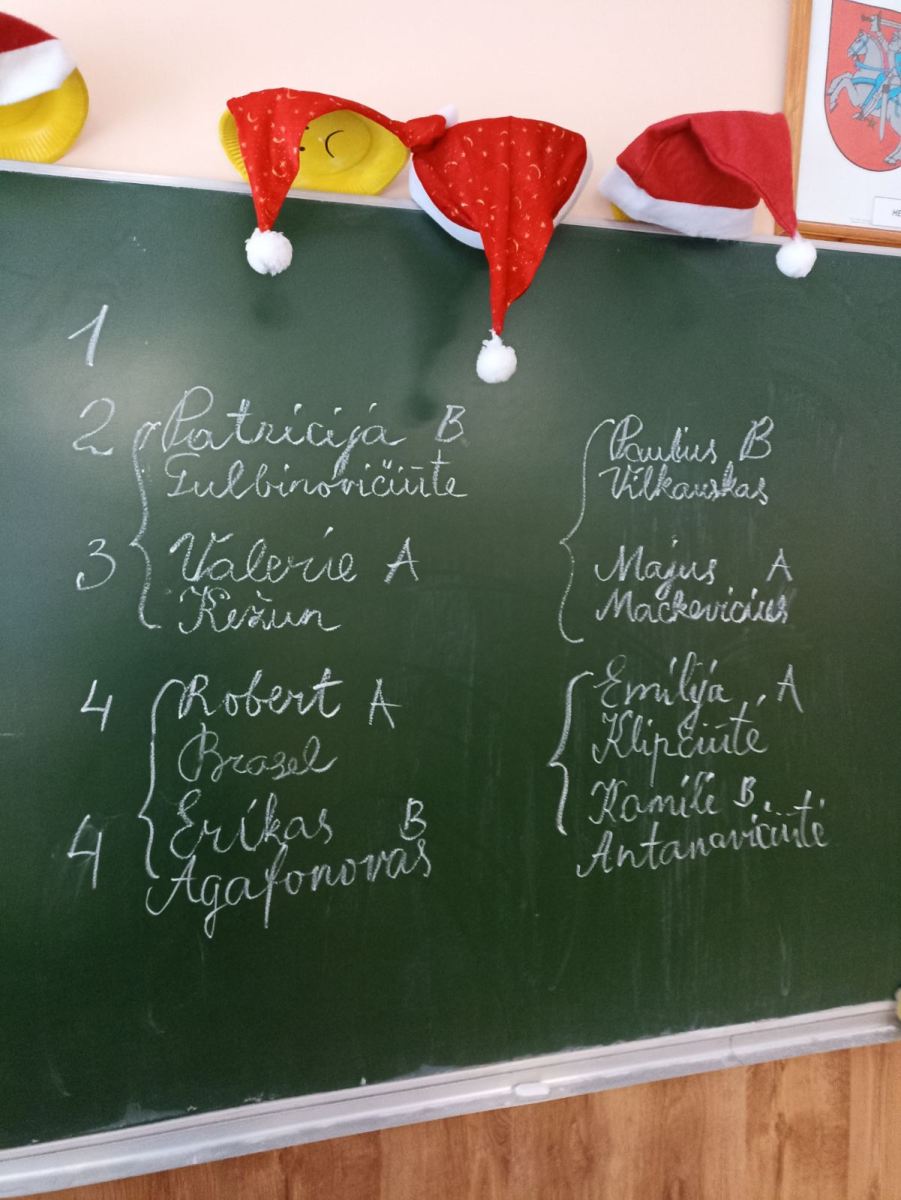 1
2 Patricija B
Gulbinovičiūtė
3 Valerie A
Kežun
4 Robert A
Brasel
4 Erikas B
Agafonovas
Paulius B
Vilkauskas
Majus A
Mackevicius
Emilija A
Klipčiūtė
Kamilė B
Antanavičiūtė